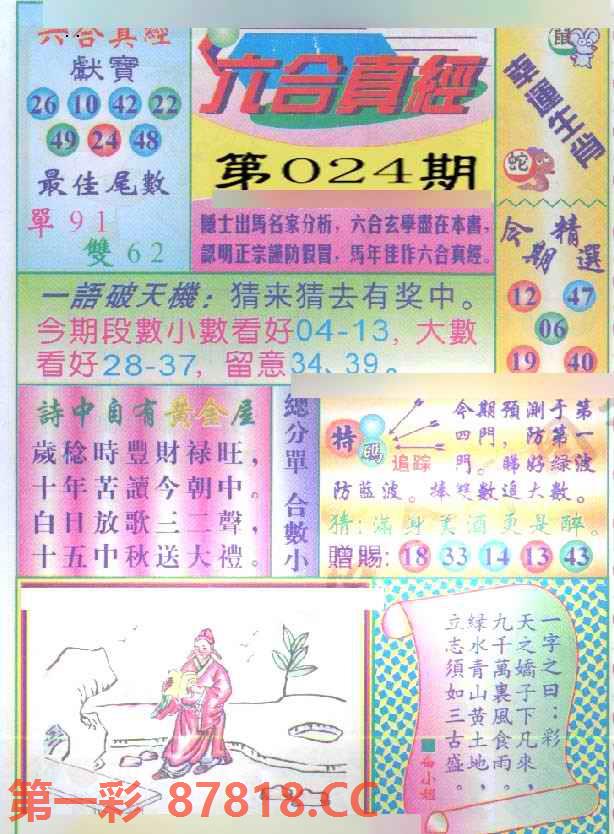 六合真經
獻寶
26 10 42 22
49 24 48
最佳尾數
單91
雙62
六合真經
第024期
隱士出馬名家分析，六合玄學盡在本書，
認明正宗謹防假冒，馬年佳作六合真經。
鼠
幸運生肖
蛇
今期精選
12 47
06
19 40
一語破天機：猜来猜去有奖中。
今期段數小數看好04-13，大數
看好28-37，留意34、39。
詩中自有黃金屋
歲稔時豐財禄旺，
十年苦讀今朝中。
白日放歌三二聲，
十五中秋送大禮。
總分單 合數小
特碼
追踪
今期預測于第
四門，防第一
門。睇好緑波
防藍波。捧雙數追大數。
猜：滿身美酒更是醉。
贈賜：18 33 14 13 43
一字之曰：彩
天之嬌子下凡來，
九千萬裏風食雨。
緑水青山黃土地，
立志須如三古盛。
第一彩 87818.CC